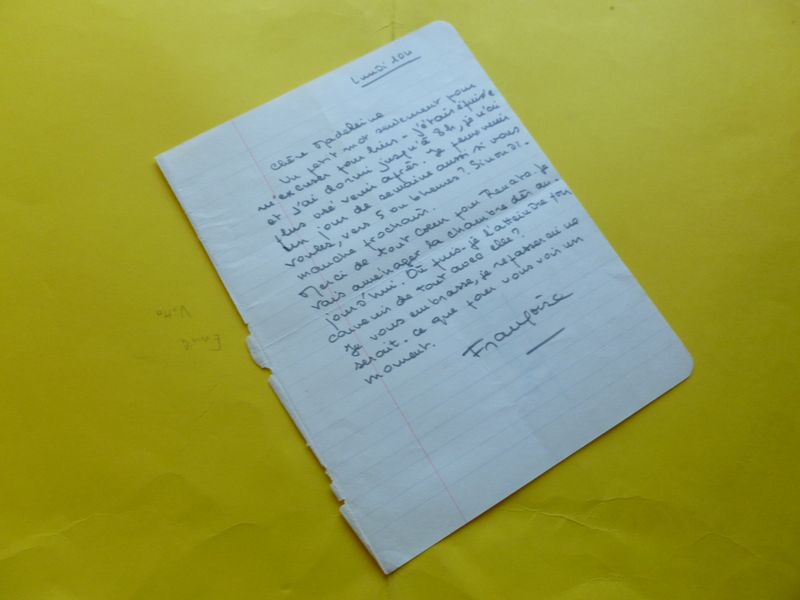 Lundi 10h
Chère Madeleine
Un petit mot seulement pour
m'excuser pour hier - j'étais épuisée
et j'ai dormi jusqu'à 8h, je n'ai
plus osé venir après. Je peux venir
un jour de semaine aussi si vous
voulez, vers 5 ou 6 heures? Sinon di-
manche prochain.
Merci de tout coeur pour Renato. Je
vais aménager la chambre dès au-
jourd'hui. Où puis-je l'atteindre pour
convenir de tout avec elle?
Je vous embrasse, je repasserai ne
serait-ce que pour vous voir un
moment.
Françoise